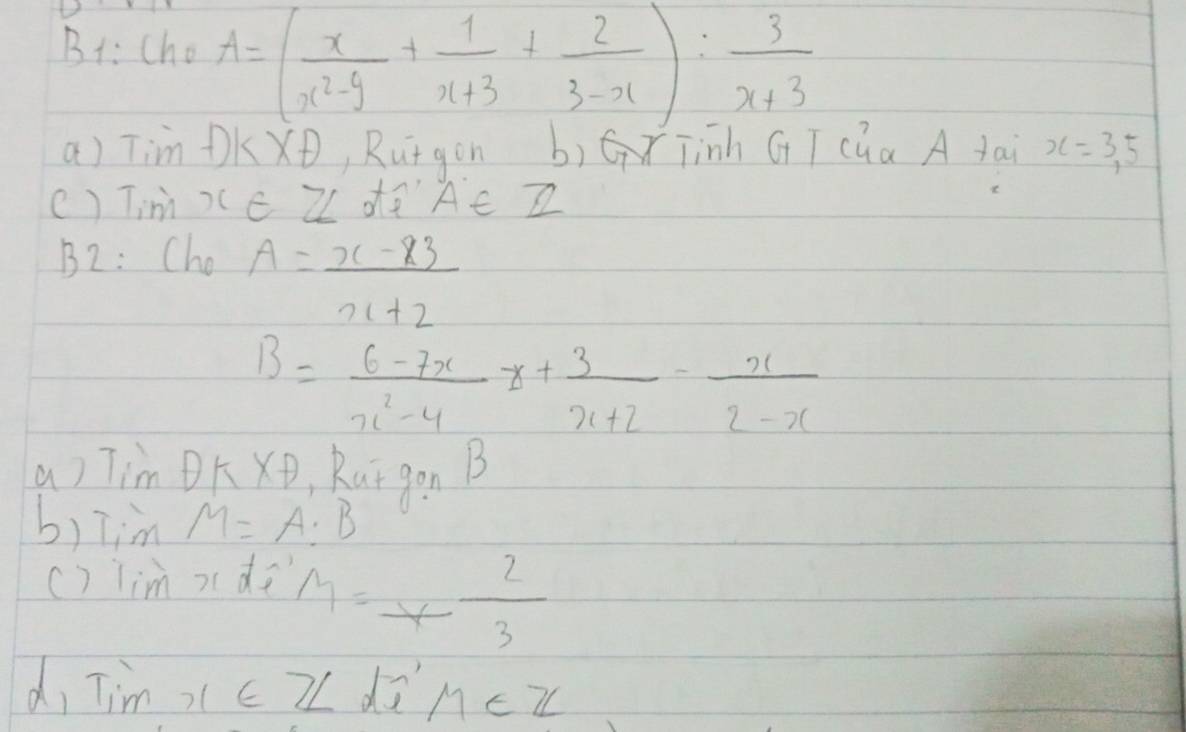 B1: Cho A = (x/(x²-9) + 1/(x+3) + 2/(3-x)) : 3/(x+3)
a) Tìm ĐKXĐ, Rút gọn b) Tính GT của A tại x = 3,5
c) Tìm x ∈ Z để A ∈ Z
B2: Cho A = (x-3)/(x+2)
B = (6-7x)/(x²-4) + 3/(x+2) - x/(2-x)
a) Tìm ĐKXĐ, Rút gọn B
b) Tìm M = A : B
c) Tìm x để M = 2/3
d, Tìm x ∈ Z để M ∈ Z